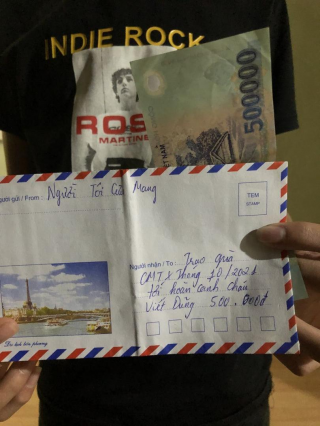 INDIE ROCK
ROS
MARTINE
500000
VIỆT NAM
Người gửi / From: Người Tối Cửa Mang
TEM
STAMP
Người nhận / To: Trao quà
CMTX Tháng 10/2021
tới hoàn cảnh cháu
Viết Dũng 500.000đ
Du lịch bốn phương